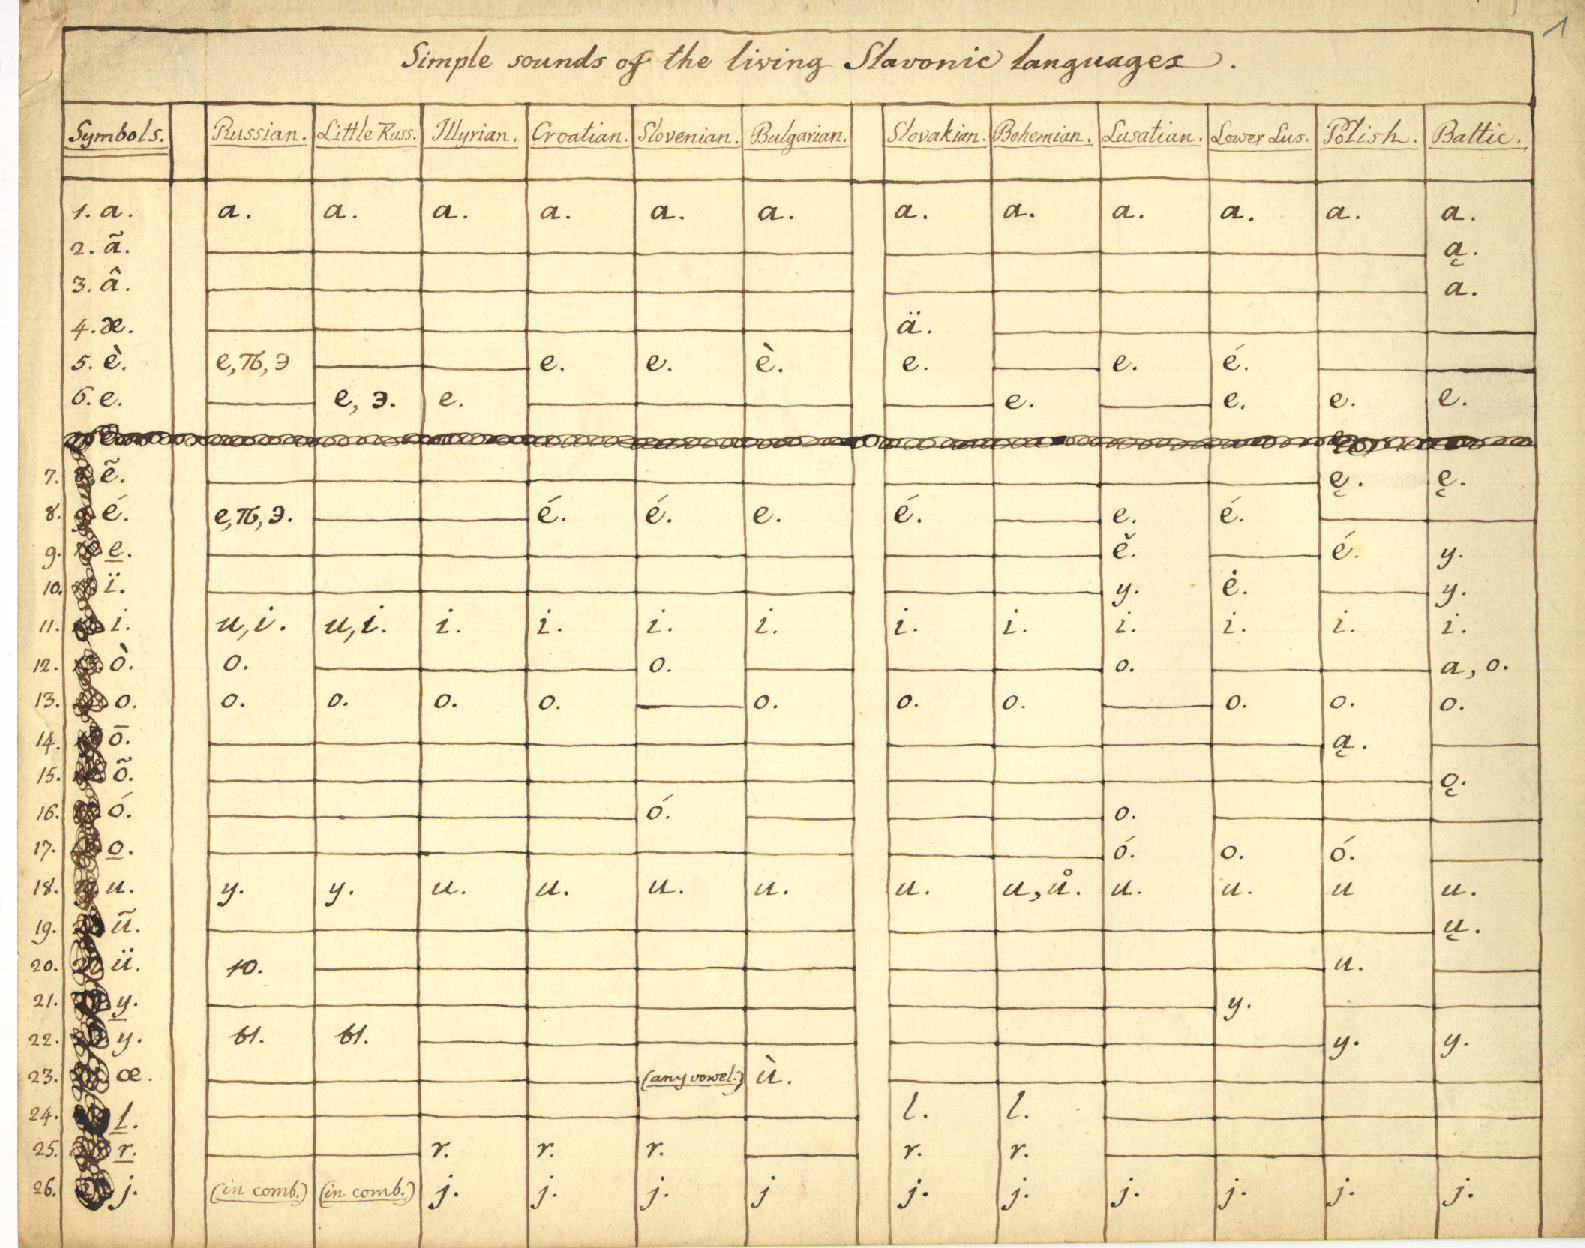 1
Simple sounds of the living Slavonic languages.
Symbols. Russian. Little Russ. Illyrian. Croatian. Slovenian. Bulgarian. Slovakian. Bohemian. Lusatian. Lower Lus. Polish. Baltic.
1. a. a. a. a. a. a. a. a. a. a. a. a. a.
2. ã. ą.
3. â. a.
4. æ. ä.
5. è. e, ѣ, э e. e. è. e. e. é.
6. e. e, э. e. e. e. e. e.
7. ẽ. ę. ę.
8. é. e, ѣ, э. é. é. e. é. e. é.
9. e. ě. é. y.
10. ï. y. ė. y.
11. i. и, i. и, i. i. i. i. i. i. i. i. i. i. i.
12. ò. o. o. o. a, o.
13. o. o. o. o. o. o. o. o. o. o. o.
14. ō. ą.
15. õ. ǫ.
16. ó. ó. o.
17. o. ó. o. ó.
18. u. y. y. u. u. u. u. u. u, ů. u. u. u u.
19. ũ. ų.
20. ü. ю. u.
21. y. y.
22. y. ы. ы. y. y.
23. œ. (any vowel.) ù.
24. l. l. l.
25. r. r. r. r. r. r.
26. j. (in comb.) (in comb.) j. j. j. j j. j. j. j. j. j.